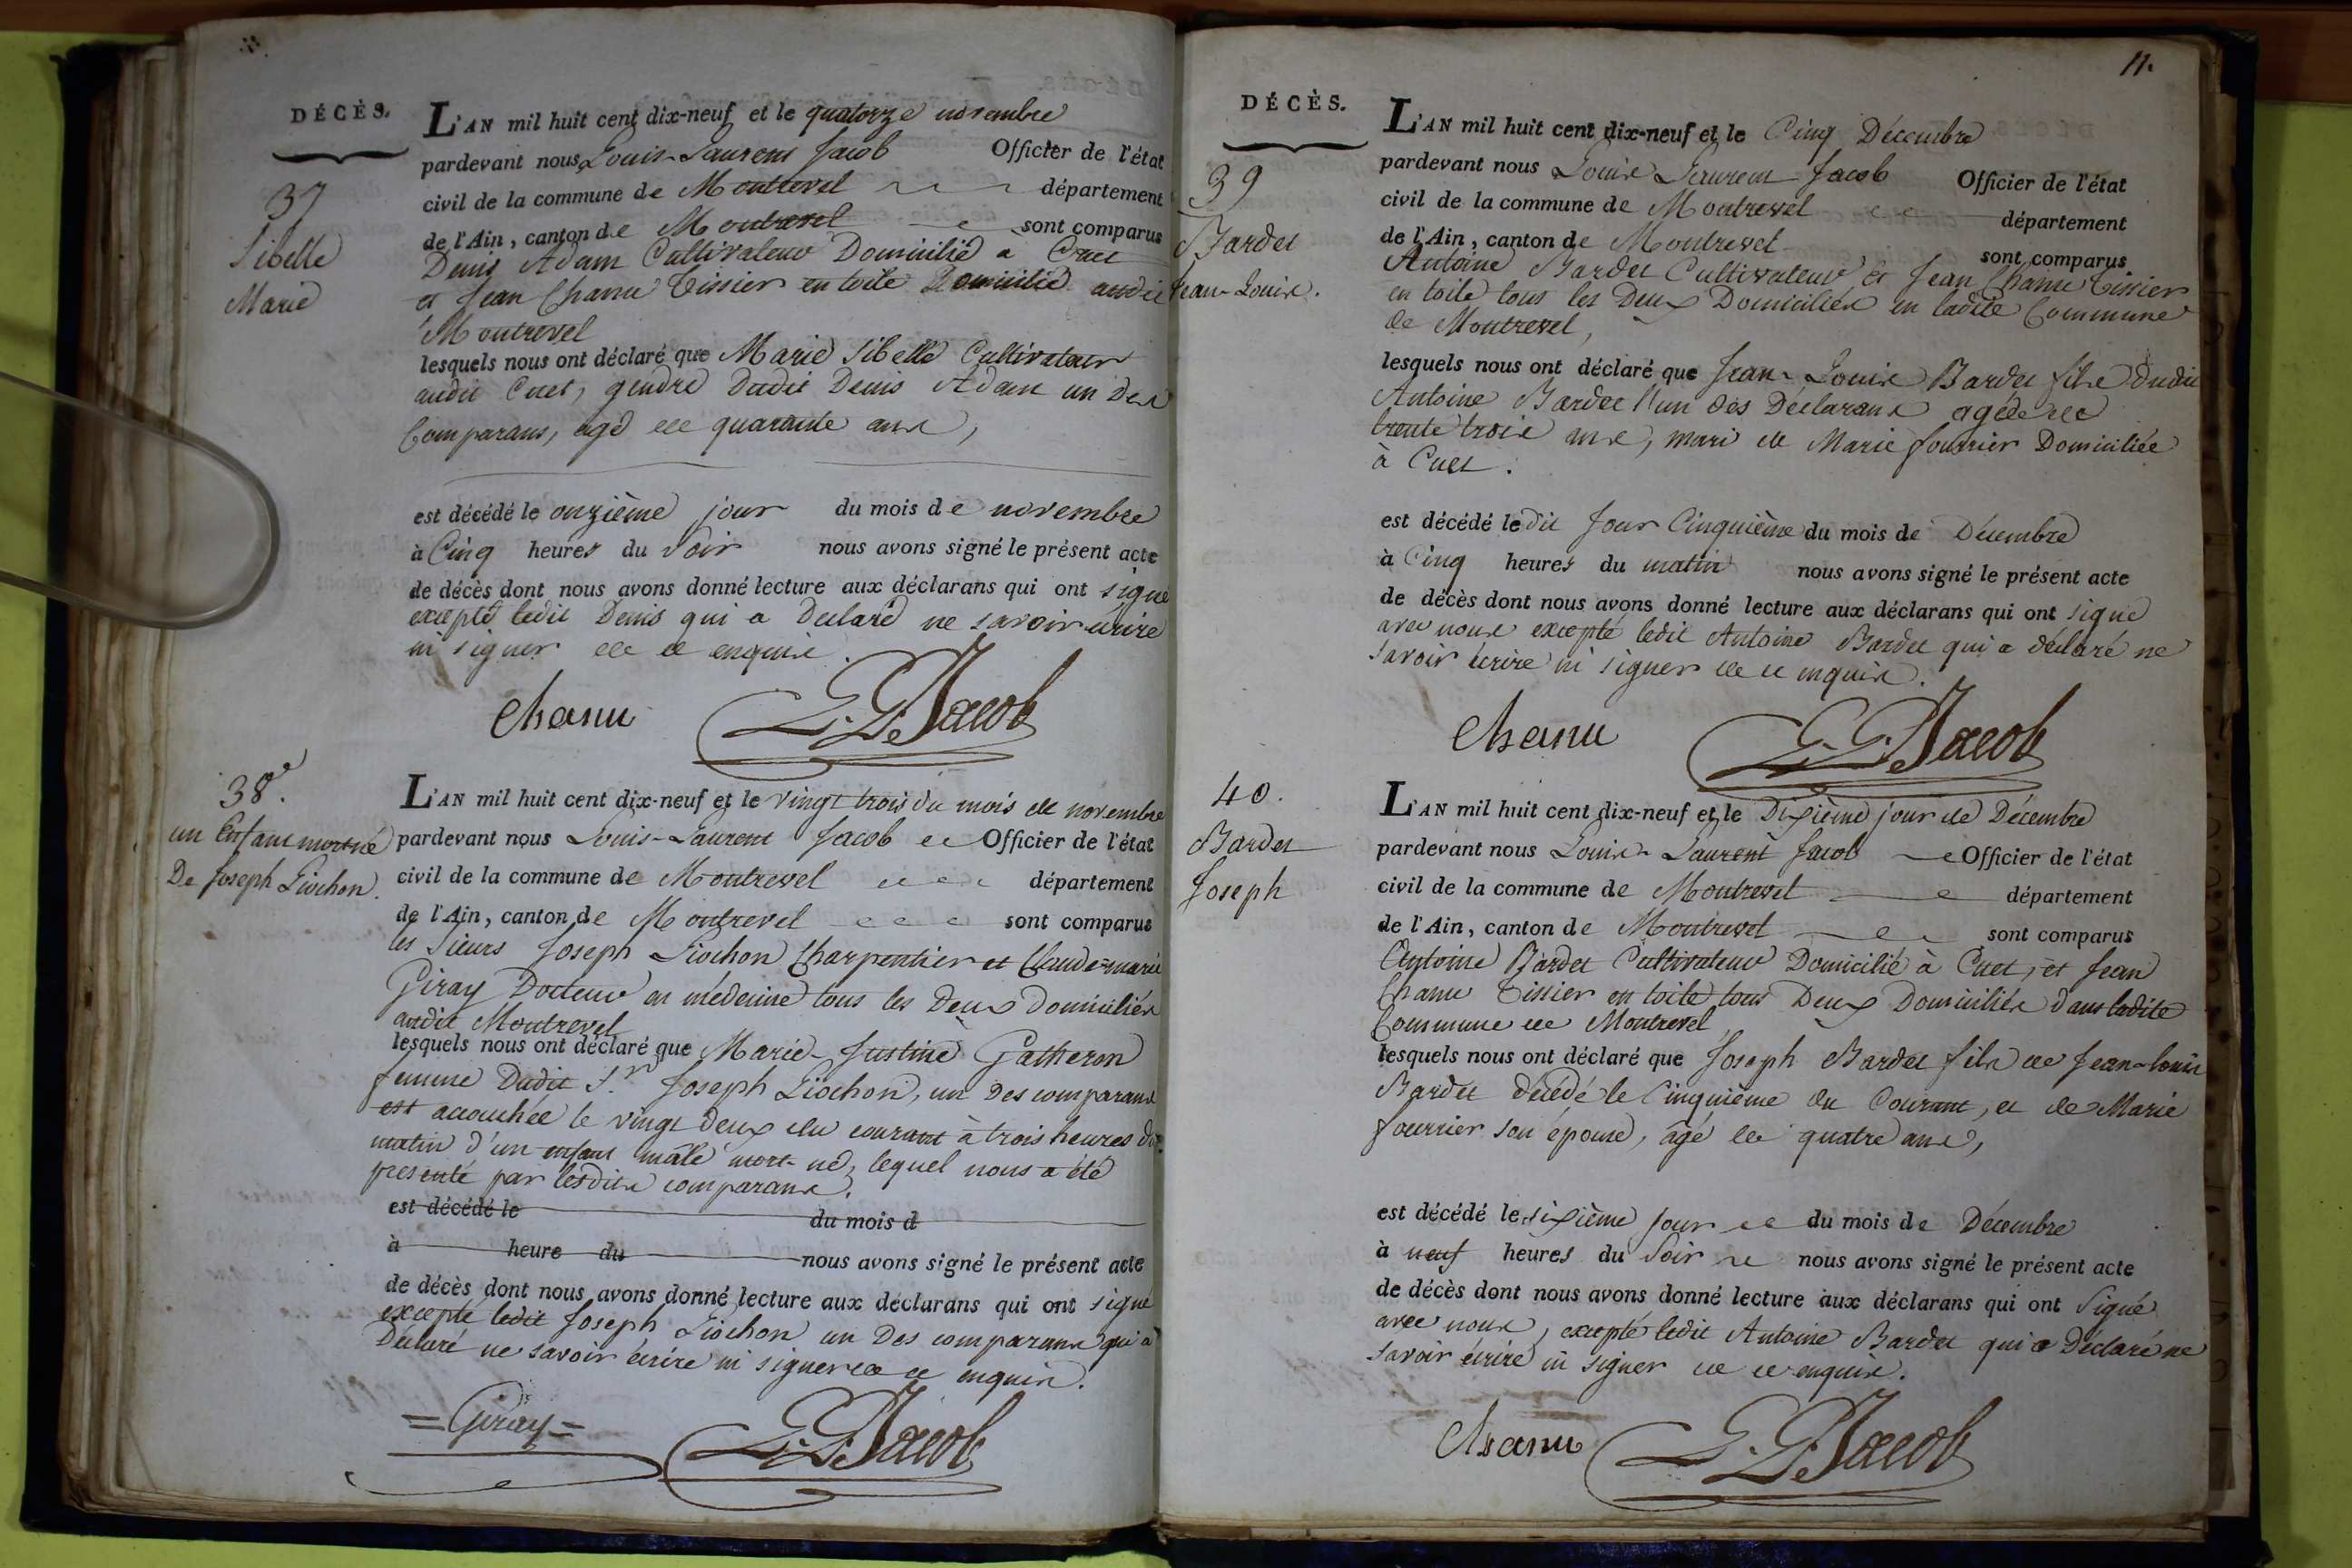 DÉCÈS.
37
Sibelle
Marie
L'AN mil huit cent dix-neuf et le quatorze novembre
pardevant nous Louis-Laurent Jacob Officier de l'état
civil de la commune de Montrevel département
de l'Ain, canton de Montrevel sont comparus
Denis Adam Cultivateur Domicilié a Cuet
et Jean Chanu Tissier en toile Domicilié audit
Montrevel
lesquels nous ont déclaré que Marie Sibelle Cultivateur
audit Cuet, gendre Dudit Denis Adam un Des
Comparans, agé de quarante ans,
est décédé le onzième jour du mois de novembre
à Cinq heures du Soir nous avons signé le présent acte
de décès dont nous avons donné lecture aux déclarans qui ont signé
excepté ledit Denis qui a Déclaré ne savoir écrire
ni signer de ce enquis.
Chanu L. L. Jacob
38e.
un Enfant mort né
De Joseph Liochon.
L'AN mil huit cent dix-neuf et le vingt trois du mois de novembre
pardevant nous Louis-Laurent Jacob Officier de l'état
civil de la commune de Montrevel département
de l'Ain, canton de Montrevel sont comparus
les Sieurs Joseph Liochon Charpentier et Claude-marie
Giray Docteur en médecine tous les Deux domiciliés
audit Montrevel
lesquels nous ont déclaré que Marie-Justine Gatheron
femme Dudit Sr. Joseph Liochon, un Des comparans
est accouchée le vingt Deux du courant à trois heures du
matin d'un enfant mâle mort-né, lequel nous a été
présenté par lesdits comparans.
est décédé le du mois d
à heure du nous avons signé le présent acte
de décès dont nous avons donné lecture aux déclarans qui ont signé
excepté ledit Joseph Liochon un Des comparans qui a
Déclaré ne savoir écrire ni signer de ce enquis.
=Giray= L. L. Jacob
11.
DÉCÈS.
39
Bardet
Jean-Louis.
L'AN mil huit cent dix-neuf et le Cinq Décembre
pardevant nous Louis Laurent Jacob Officier de l'état
civil de la commune de Montrevel département
de l'Ain, canton de Montrevel sont comparus
Antoine Bardet Cultivateur et Jean Chanu Tissier
en toile tous les Deux Domiciliés en ladite Commune
de Montrevel,
lesquels nous ont déclaré que Jean-Louis Bardet fils dudit
Antoine Bardet l'un des Déclarans agé de
trente trois ans, mari de Marie fournier Domiciliée
à Cuet.
est décédé ledit Jour Cinquième du mois de Décembre
à Cinq heures du matin nous avons signé le présent acte
de décès dont nous avons donné lecture aux déclarans qui ont signé
avec nous excepté ledit Antoine Bardet qui a déclaré ne
savoir écrire ni signer de ce enquis.
Chanu L. L. Jacob
40.
Bardet
Joseph
L'AN mil huit cent dix-neuf et le Dixième jour de Décembre
pardevant nous Louis-Laurent Jacob Officier de l'état
civil de la commune de Montrevel département
de l'Ain, canton de Montrevel sont comparus
Antoine Bardet Cultivateur Domicilié à Cuet, et Jean
Chanu Tissier en toile tous Deux Domiciliés dans ladite
Commune de Montrevel
lesquels nous ont déclaré que Joseph Bardet fils de Jean-louis
Bardet décédé le Cinquième du Courant, et de Marie
fournier son épouse, âgé de quatre ans,
est décédé le sixième jour du mois de Décembre
à neuf heures du Soir nous avons signé le présent acte
de décès dont nous avons donné lecture aux déclarans qui ont Signé
avec nous, excepté ledit Antoine Bardet qui a Déclaré ne
savoir écrire ni signer de ce enquis.
Chanu L. L. Jacob